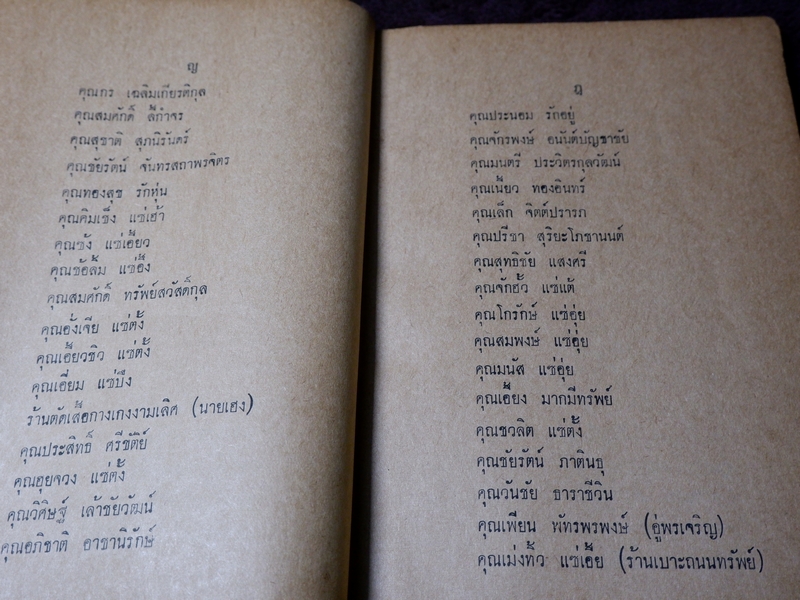 ญ
คุณกร เฉลิมเกียรติกุล
คุณสมศักดิ์ ลีกำจร
คุณสุชาติ สุภนิรันดร์
คุณชัยรัตน์ จันทรสถาพรจิตร
คุณทองสุข รักหุ่น
คุณคิมเซ็ง แซ่เฮ้า
คุณซัง แซ่เอี้ยว
คุณซ้อลั้ม แซ่อึ้ง
คุณสมศักดิ์ ทรัพย์สวัสดิ์กุล
คุณอั้งเจีย แซ่ตั้ง
คุณเอี้ยวซิว แซ่ตั้ง
คุณเอี่ยม แซ่ปึง
ร้านตัดเสื้อกางเกงงามเลิศ (นายเฮง)
คุณประสิทธิ์ ศรีชัติย์
คุณฮุยจวง แซ่ตั้ง
คุณวิศิษฐ์ เล้าชัยวัฒน์
คุณอภิชาติ อาชานิรักษ์
ฎ
คุณประนอม รักอยู่
คุณจักรพงษ์ อนันต์บัญชาชัย
คุณมนตรี ประวิตรกุลวัฒน์
คุณเนี้ยว ทองอินทร์
คุณเล็ก จิตต์ปรารภ
คุณปรีชา สุริยะโภชานนต์
คุณสุทธิชัย แสงศรี
คุณจักฮั้ว แซ่แต้
คุณโกรักษ์ แซ่อุ่ย
คุณสมพงษ์ แซ่อุ่ย
คุณมนัส แซ่อุ่ย
คุณเอี้ยง มากมีทรัพย์
คุณชวลิต แซ่ตั้ง
คุณชัยรัตน์ ภาตินธุ
คุณวันชัย ธาราชีวิน
คุณเพียน พัทรพรพงษ์ (อู่พรเจริญ)
คุณเม่งทิ้ว แซ่เอี้ย (ร้านเบาะถนนทรัพย์)